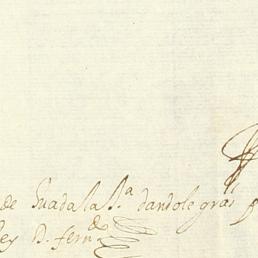 de Guadalax.ª dandole gra.s
Rey D. Fern.do